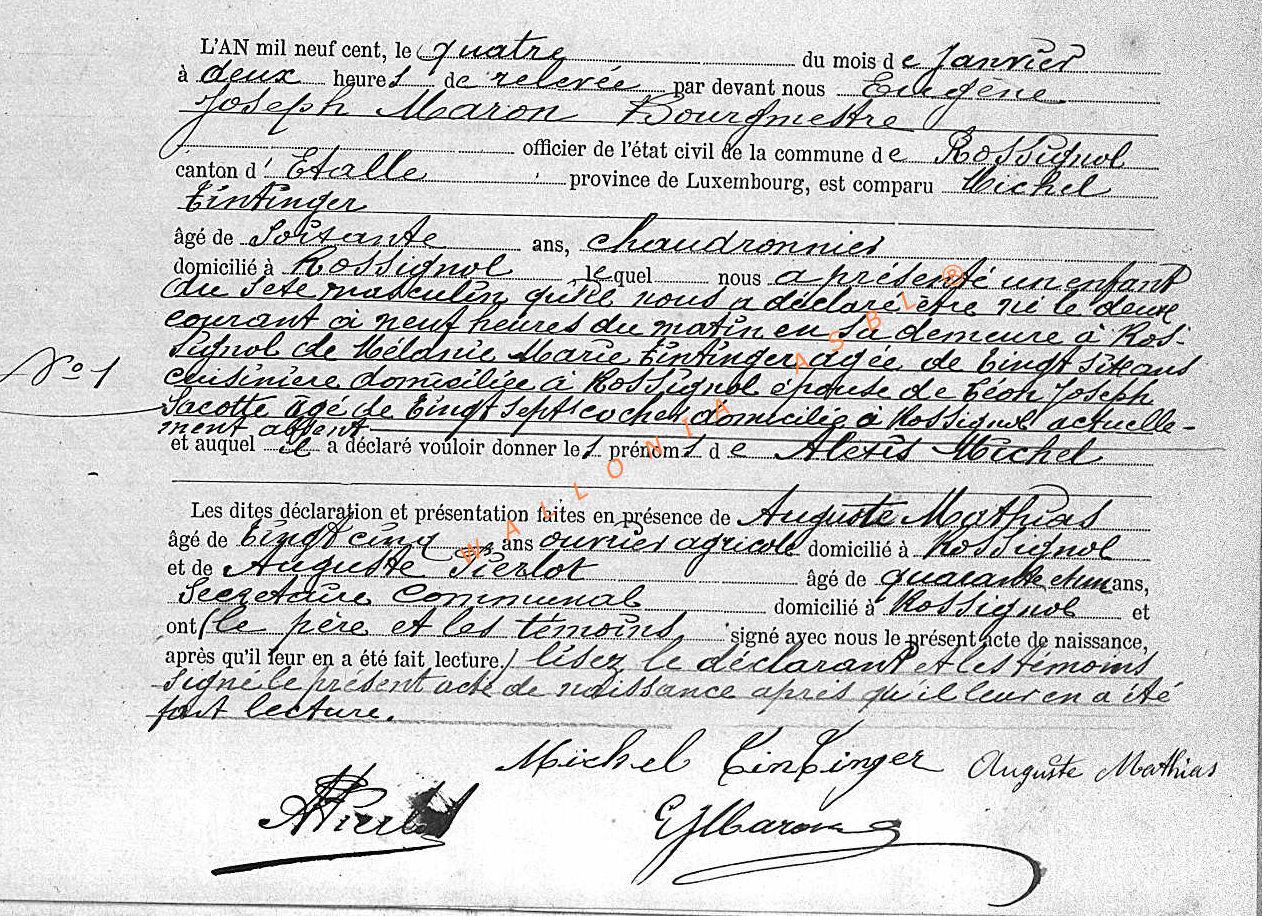 L'AN mil neuf cent, le quatre du mois de Janvier
à deux heures de relevée par devant nous Eugène
Joseph Maron Bourgmestre
officier de l'état civil de la commune de Rossignol
canton d'Etalle province de Luxembourg, est comparu Michel
Tintinger
âgé de soixante ans, chaudronnier
domicilié à Rossignol, lequel nous a présenté un enfant
du sexe masculin qu'il nous a déclaré être né le deux
courant à neuf heures du matin en sa demeure à Ros-
signol de Mélanie Marie Tintinger agée de vingt six ans
cuisinière domiciliée à Rossignol épouse de Léon Joseph
Lacotte âgé de vingt sept cocher domicilié à Rossignol actuelle-
ment absent
N° 1
et auquel il a déclaré vouloir donner les prénoms de Alexis Michel
Les dites déclaration et présentation faites en présence de Auguste Mathias
âgé de vingt cinq ans ouvrier agricole domicilié à Rossignol
et de Auguste Pierlot âgé de quarante et un ans,
Secrétaire Communal domicilié à Rossignol et
ont (le père et les témoins, signé avec nous le présent acte de naissance,
après qu'il leur en a été fait lecture.) lisez le déclarant et les témoins
signé le présent acte de naissance après qu'il leur en a été
fait lecture.
Michel Tintinger Auguste Mathias
APierlot EJMaron
WALLONIA ASBL ®